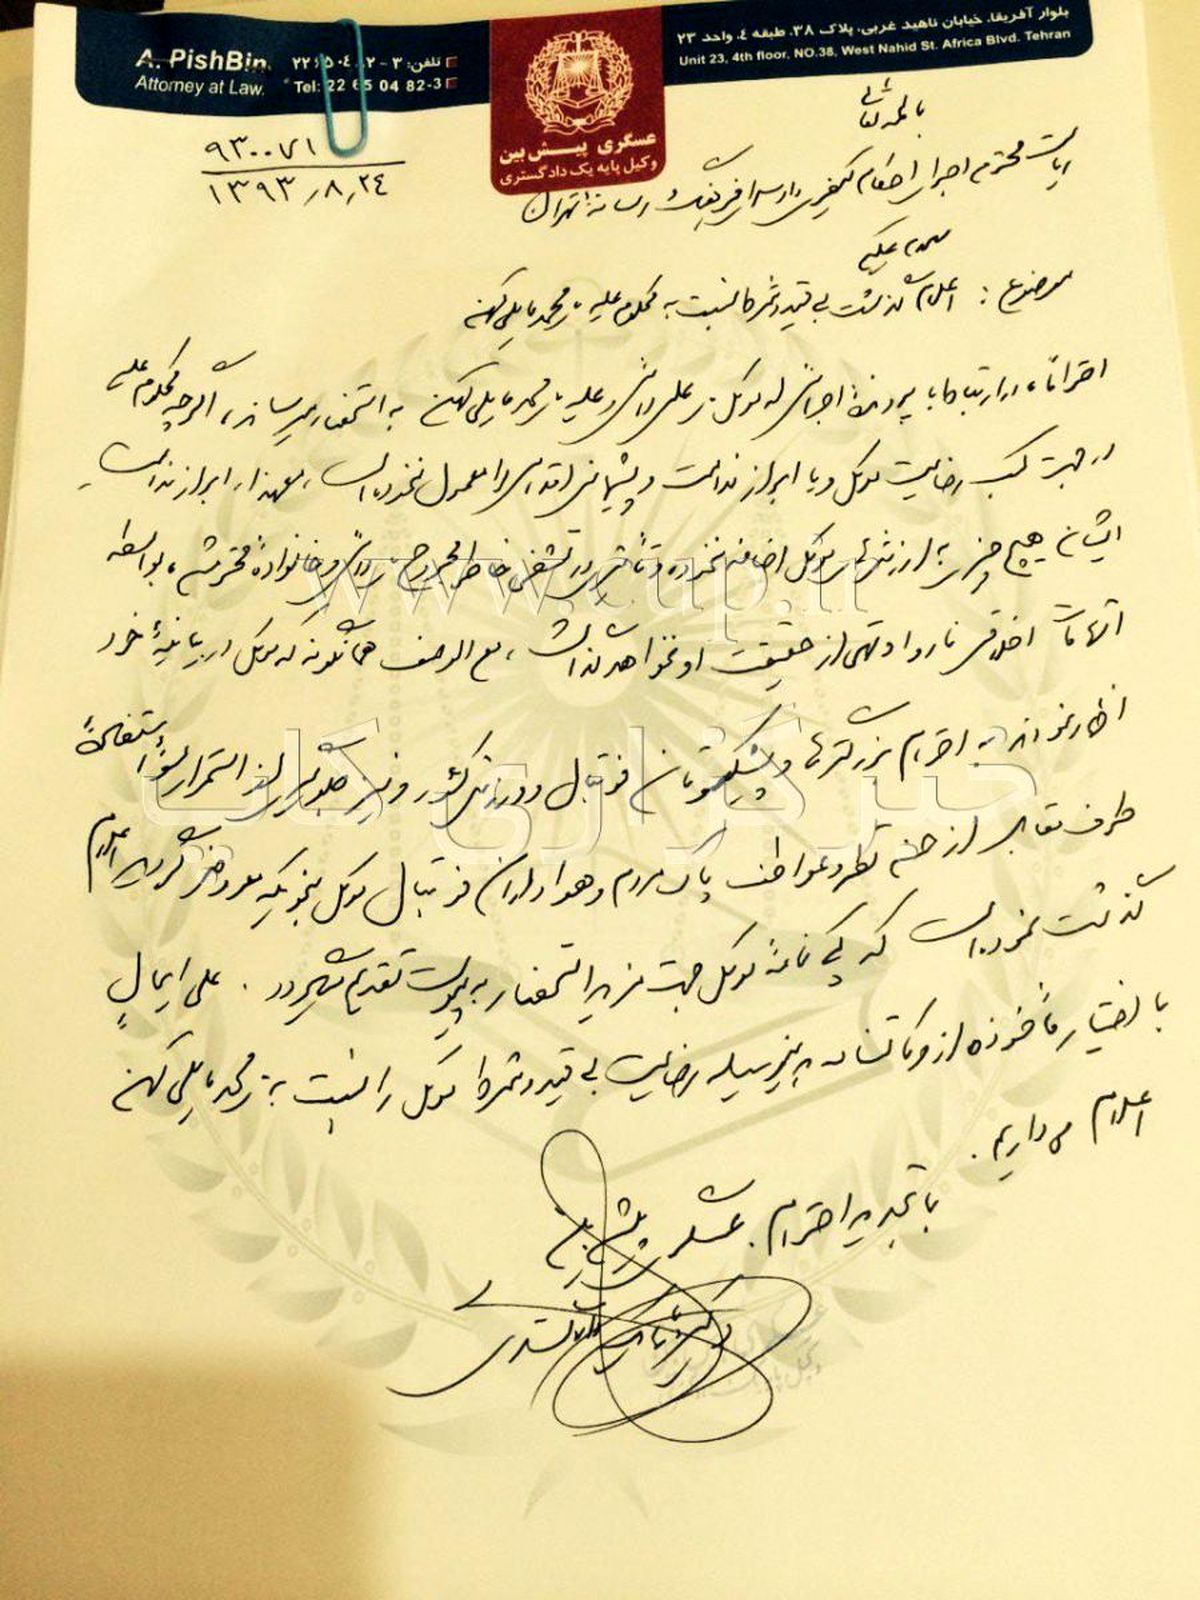 A. PishBin
Attorney at Law.
تلفن: ۳-۲۲۶۵۰۴۸۲
Tel: 22 65 04 82-3
عسگری پیش بین
وکیل پایه یک دادگستری
بلوار آفریقا، خیابان ناهید غربی، پلاک ۳۸، طبقه ٤، واحد ۲۳
Unit 23, 4th floor, NO.38, West Nahid St. Africa Blvd. Tehran
۹۳۰۰۷۱
۱۳۹۳٫۸٫۲۴
باسمه تعالی
ریاست محترم اجرای احکام کیفری دادسرای فرهنگ و رسانه تهران
سلام علیکم
موضوع: اعلام گذشت بی قید و شرط نسبت به محکوم علیه محمد مایلی کهن
احتراماً، در ارتباط با پرونده اجرائی له موکل علی دائی و علیه محمد مایلی کهن به استحضار میرساند، اگرچه محکوم علیه
در جهت کسب رضایت موکل و یا ابراز ندامت و پشیمانی اقدامی را معمول ننموده است، معهذا، ابراز ندامت
ایشان هیچ چیزی به ارزشهای موکل اضافه ننموده و تأثیری در تشفی خاطر مجروح دائی و خانواده محترمشان، بواسطه
اتهامات اخلاقی ناروا و تهی از حقیقت او نخواهد داشت، مع الوصف همانگونه که موکل در بیانیهٔ خود
اظهار نموده اند به احترام بزرگترها و پیشکسوتان فوتبال و ورزش کشور و نیز جلوگیری از استمرار سوء استفادهٔ
طرف مقابل از خدشه و عواطف پاک مردم و هواداران فوتبال موکل بنحویکه معروض گردید اعلام
گذشت نموده است که کپی نامهٔ موکل جهت مزید استحضار به پیوست تقدیم میگردد. علی ایحالٍ
با اختیار مأخوذه از وکالتنامه بدینوسیله رضایت بی قید و شرط موکل را نسبت به محمد مایلی کهن
اعلام می داریم.
با تجدید احترام. عسگری پیش بین
وکیل پایه یک دادگستری
www.cup.ir
خبرگزاری کاپ